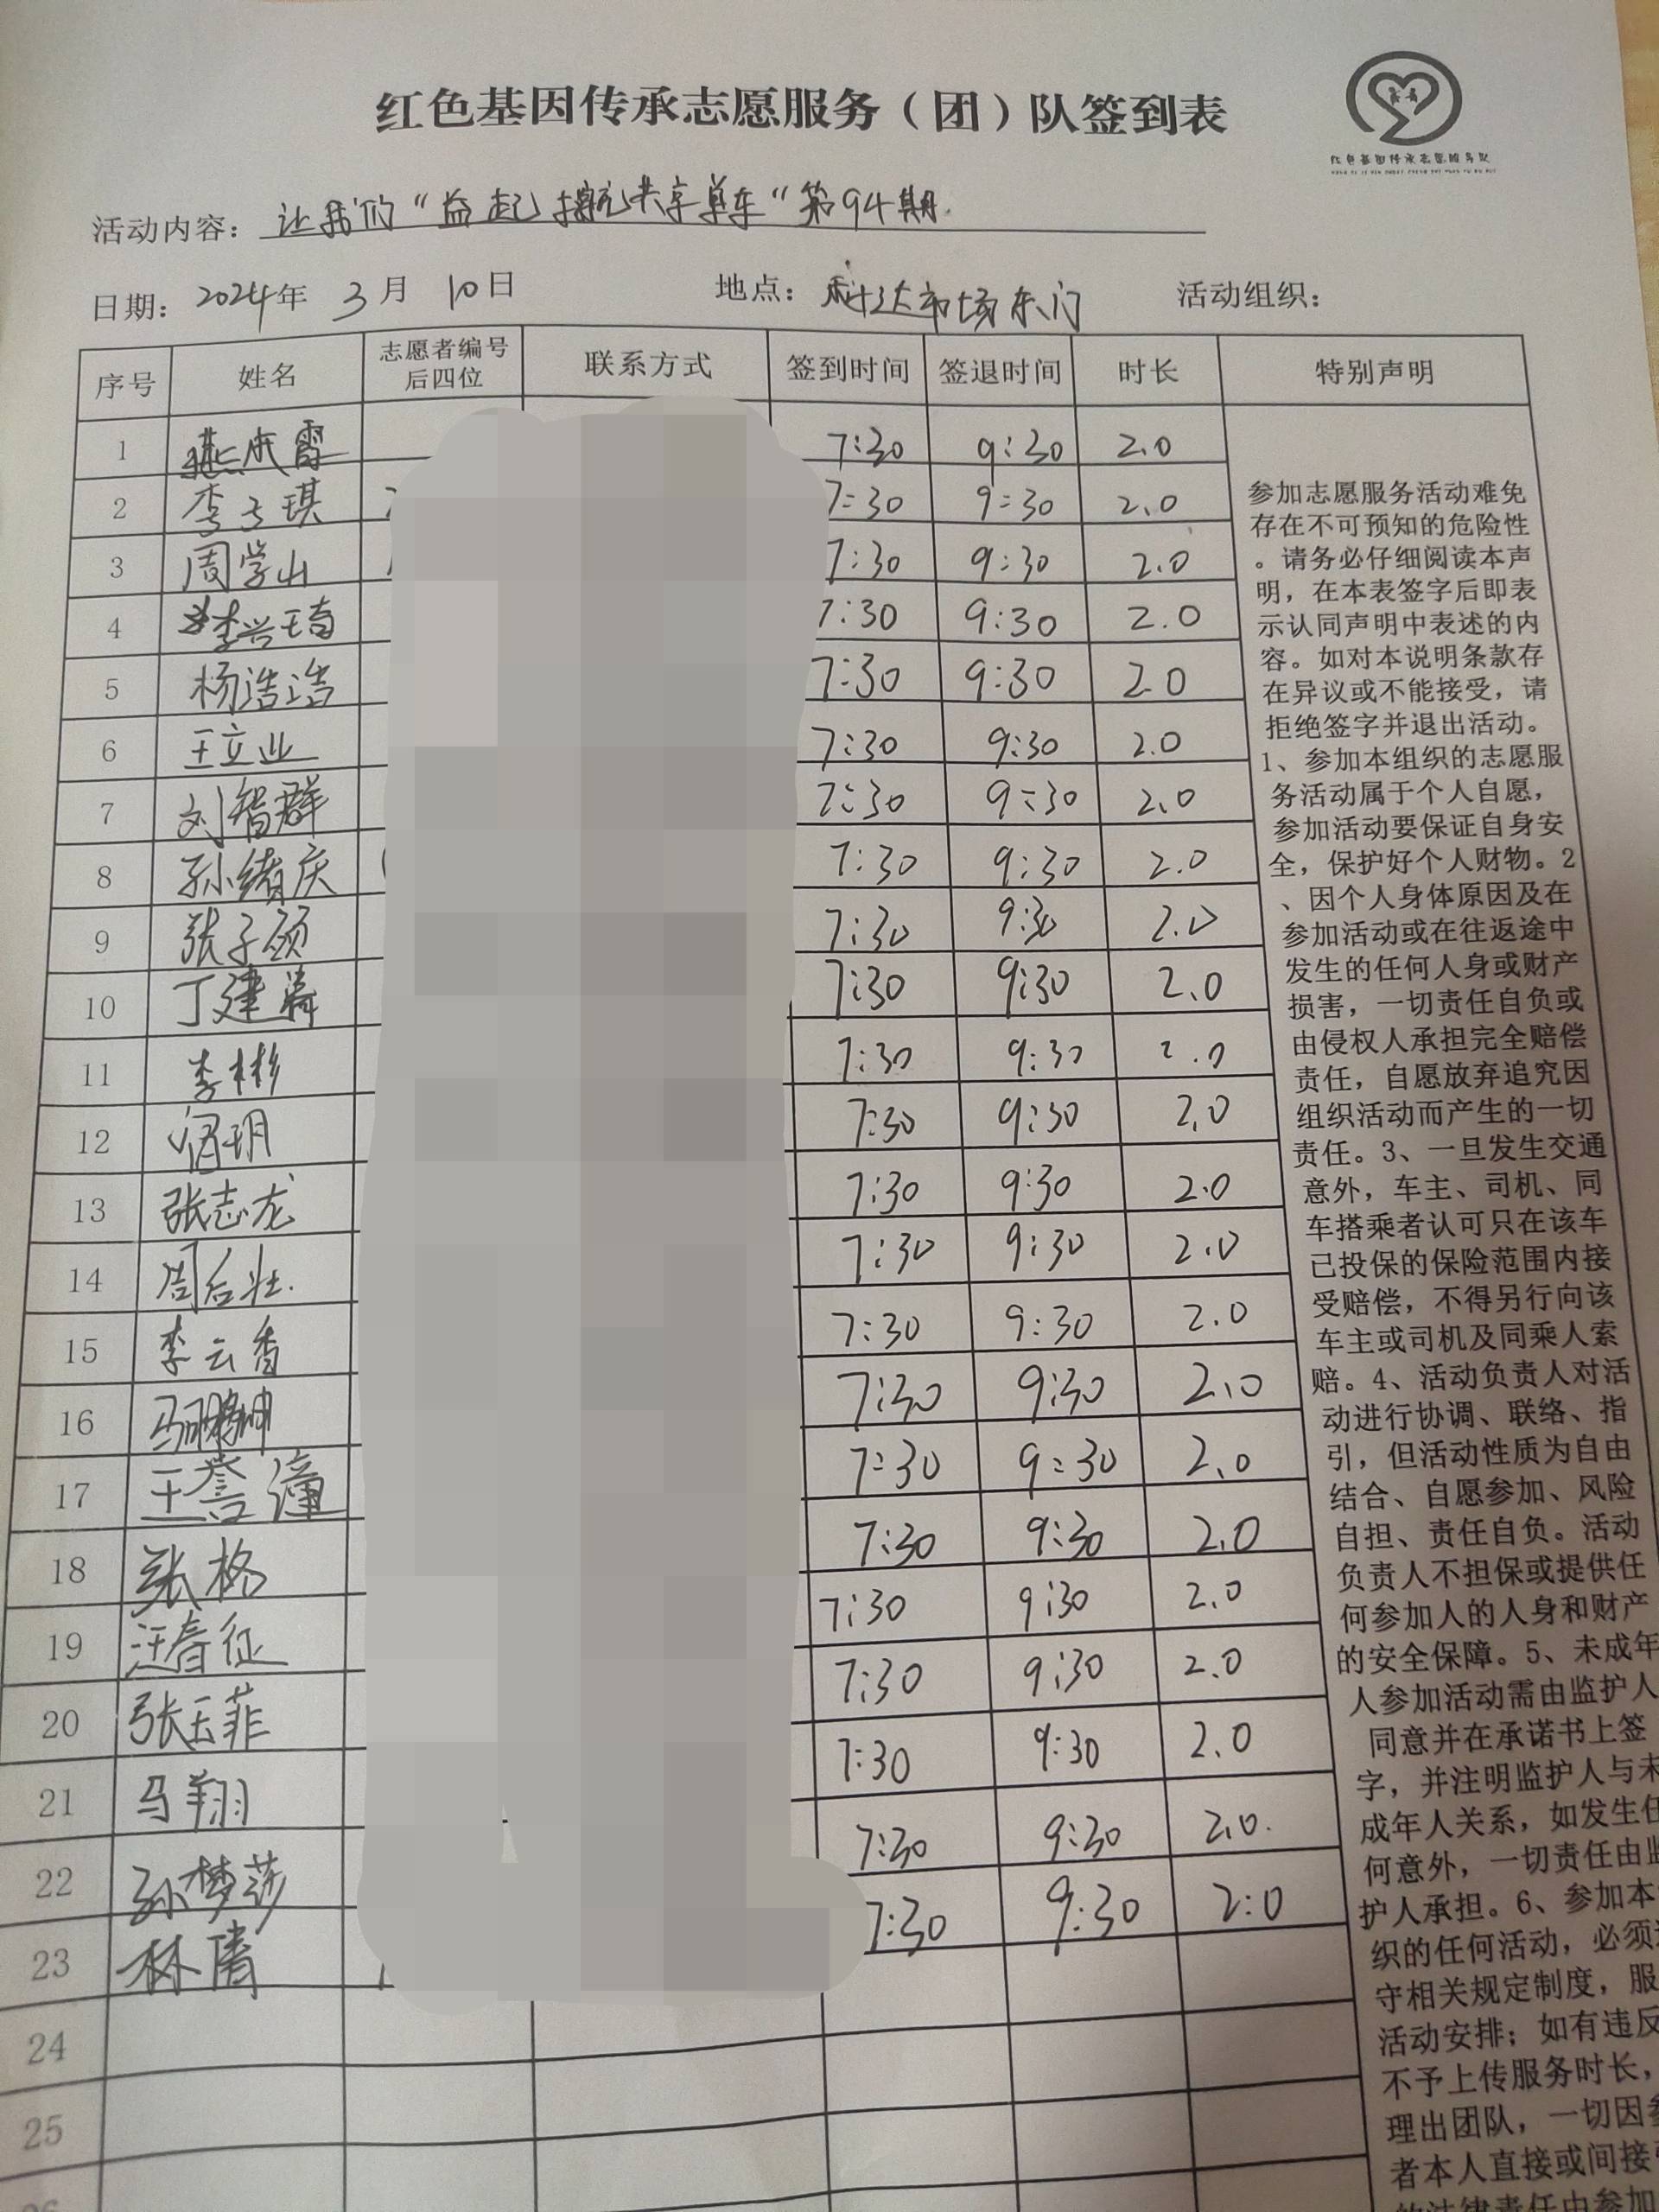 红色基因传承志愿服务（团）队签到表
红色基因传承志愿服务队
活动内容：让我们“益起摆共享单车”第94期
日期：2024年 3月 10日 地点：科达市场东门 活动组织：
序号 姓名 志愿者编号后四位 联系方式 签到时间 签退时间 时长 特别声明
1 7:30 9:30 2.0
2 李子琪 7:30 9:30 2.0
3 周学山 7:30 9:30 2.0
4 李兴琦 7:30 9:30 2.0
5 杨浩浩 7:30 9:30 2.0
6 王立业 7:30 9:30 2.0
7 刘智群 7:30 9:30 2.0
8 孙绪庆 7:30 9:30 2.0
9 张子硕 7:30 9:30 2.0
10 丁建 7:30 9:30 2.0
11 李彬 7:30 9:30 2.0
12 7:30 9:30 2.0
13 张志龙 7:30 9:30 2.0
14 周后壮 7:30 9:30 2.0
15 李云香 7:30 9:30 2.0
16 7:30 9:30 2.0
17 王誉潼 7:30 9:30 2.0
18 张格 7:30 9:30 2.0
19 汪春征 7:30 9:30 2.0
20 张玉菲 7:30 9:30 2.0
21 马翔 7:30 9:30 2.0
22 孙梦莎 7:30 9:30 2.0.
23 林倩 7:30 9:30 2:0
24
25
参加志愿服务活动难免
存在不可预知的危险性
。请务必仔细阅读本声
明，在本表签字后即表
示认同声明中表述的内
容。如对本说明条款存
在异议或不能接受，请
拒绝签字并退出活动。
1、参加本组织的志愿服
务活动属于个人自愿，
参加活动要保证自身安
全，保护好个人财物。2
、因个人身体原因及在
参加活动或在往返途中
发生的任何人身或财产
损害，一切责任自负或
由侵权人承担完全赔偿
责任，自愿放弃追究因
组织活动而产生的一切
责任。3、一旦发生交通
意外，车主、司机、同
车搭乘者认可只在该车
已投保的保险范围内接
受赔偿，不得另行向该
车主或司机及同乘人索
赔。4、活动负责人对活
动进行协调、联络、指
引，但活动性质为自由
结合、自愿参加、风险
自担、责任自负。活动
负责人不担保或提供任
何参加人的人身和财产
的安全保障。5、未成年
人参加活动需由监护人
同意并在承诺书上签
字，并注明监护人与未
成年人关系，如发生任
何意外，一切责任由监
护人承担。6、参加本
织的任何活动，必须
守相关规定制度，服
活动安排；如有违反
不予上传服务时长，
理出团队，一切因参
者本人直接或间接
的法律责任由参加